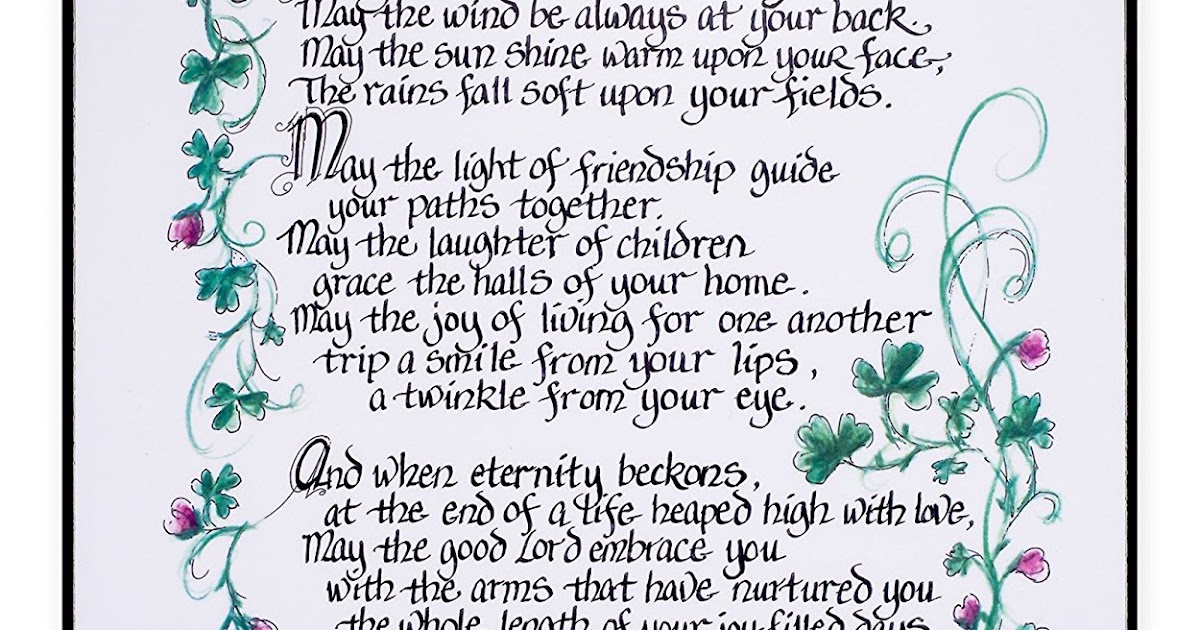 May the wind be always at your back.,
May the sun shine warm upon your face,
The rains fall soft upon your fields.
May the light of friendship guide
your paths together.
May the laughter of children
grace the halls of your home.
May the joy of living for one another
trip a smile from your lips,
a twinkle from your eye.
And when eternity beckons,
at the end of a life heaped high with love,
May the good Lord embrace you
with the arms that have nurtured you
the whole length of your joy-filled days